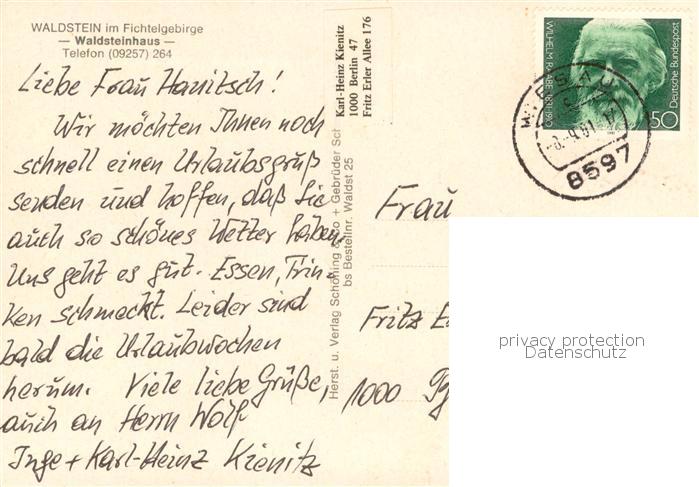 WALDSTEIN im Fichtelgebirge
— Waldsteinhaus —
Telefon (09257) 264
Liebe Frau Hanitsch!
Wir möchten Ihnen noch
schnell einen Urlaubsgruß
senden und hoffen, daß Sie
auch so schönes Wetter haben.
Uns geht es gut. Essen, Trin-
ken schmeckt. Leider sind
bald die Urlaubswochen
herum. Viele liebe Grüße,
auch an Herrn Wolf
Inge + Karl-Heinz Kienitz
Herst. u. Verlag Schöning & Co + Gebrüder Sch
bs Bestellnr. Waldst 25
Karl-Heinz Kienitz
1000 Berlin 47
Fritz Erler Allee 176
WILHELM RAABE 1831-1910
Deutsche Bundespost
50
8597
Frau
Fritz E
1000 B
privacy protection
Datenschutz